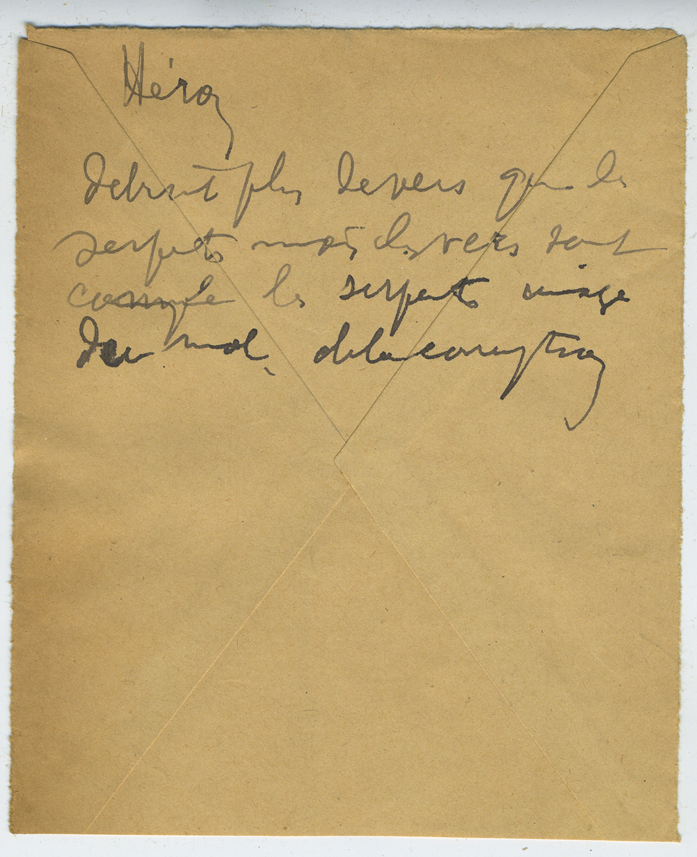 Héros
détruit plus de vers que de
serpents mais les vers sont
comme les serpents image
du mal, de la corruption